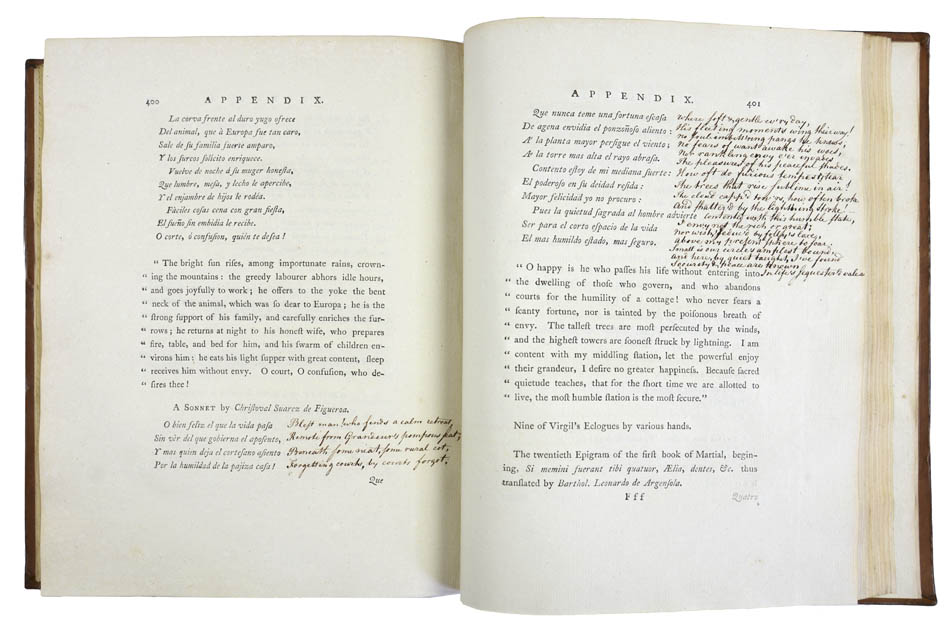 400 APPENDIX.
La corva frente al duro yugo ofrece
Del animal, que à Europa fue tan caro,
Sale de ſu familia fuerte amparo,
Y los ſurcos ſolicito enriquece.
Vuelve de noche à ſu muger honeſta,
Que lumbre, meſa, y lecho le apercibe,
Y el enjambre de hijos le rodéa.
Fàciles coſas cena con gran fieſta,
El ſueño ſin embidia le recibe.
O corte, ò confuſion, quièn te deſea!
“ The bright ſun riſes, among importunate rains, crown-
“ ing the mountains: the greedy labourer abhors idle hours,
“ and goes joyfully to work; he offers to the yoke the bent
“ neck of the animal, which was ſo dear to Europa; he is the
“ ſtrong ſupport of his family, and carefully enriches the fur-
“ rows; he returns at night to his honeſt wife, who prepares
“ fire, table, and bed for him, and his ſwarm of children en-
“ virons him: he eats his light ſupper with great content, ſleep
“ receives him without envy. O court, O confuſion, who de-
“ ſires thee!
A SONNET by Chriſtoval Suarez de Figueroa.
O bien feliz el que la vida paſa
Sin vèr del que gobierna el apoſento,
Y mas quien deja el corteſano aſiento
Por la humildad de la pajiza caſa!
Que
Bleſt man! who finds a calm retreat,
Remote from Grandeur's pompous ſeat;
Beneath ſome neat, ſome rural cot,
Forgetting courts, by courts forgot.
APPENDIX. 401
Que nunca teme una fortuna eſcaſa
De agena envidia el ponzoñoso aliento:
A la planta mayor perſigue el viento;
A la torre mas alta el rayo abraſa.
Contento eſtoy de mi mediana ſuerte:
El poderoſo en ſu deidad reſida:
Mayor felicidad yo no procuro:
Pues la quietud ſagrada al hombre advierte
Ser para el corto eſpacio de la vida
El mas humildo eſtado, mas ſeguro.
where ſoft & gentle ev'ry day,
His fleeting moments wing their way!
No pangs he knows,
No fears of want awake his woes,
Nor rankling envy e'er invades
The pleasures of his peaceful ſhades.
How oft do furious tempeſts tear
The trees that riſe ſublime in air!
The cloud capped tow'rs, how often broke
And ſhatter'd by the lightning ſtroke!
Contented with this humble ſtate,
I envy not the rich or great;
Nor wiſh, ſeduc'd by folly's lure,
above my preſent ſphere to ſoar.
Small is my circle's ampleſt bound,
And here, by quiet taught, I've found
Security & peace are known
In life's ſequeſter'd vale
“ O happy is he who paſſes his life without entering into
“ the dwelling of thoſe who govern, and who abandons
“ courts for the humility of a cottage! who never fears a
“ ſcanty fortune, nor is tainted by the poiſonous breath of
“ envy. The talleſt trees are moſt perſecuted by the winds,
“ and the higheſt towers are ſooneſt ſtruck by lightning. I am
“ content with my middling ſtation, let the powerful enjoy
“ their grandeur, I deſire no greater happineſs. Becauſe ſacred
“ quietude teaches, that for the ſhort time we are allotted to
“ live, the moſt humble ſtation is the moſt ſecure.”
Nine of Virgil's Eclogues by various hands.
The twentieth Epigram of the firſt book of Martial, begin-
ning, Si memini fuerant tibi quatuor, Ælia, dentes, &c. thus
tranſlated by Barthol. Leonardo de Argenſola.
F f f
Quatro